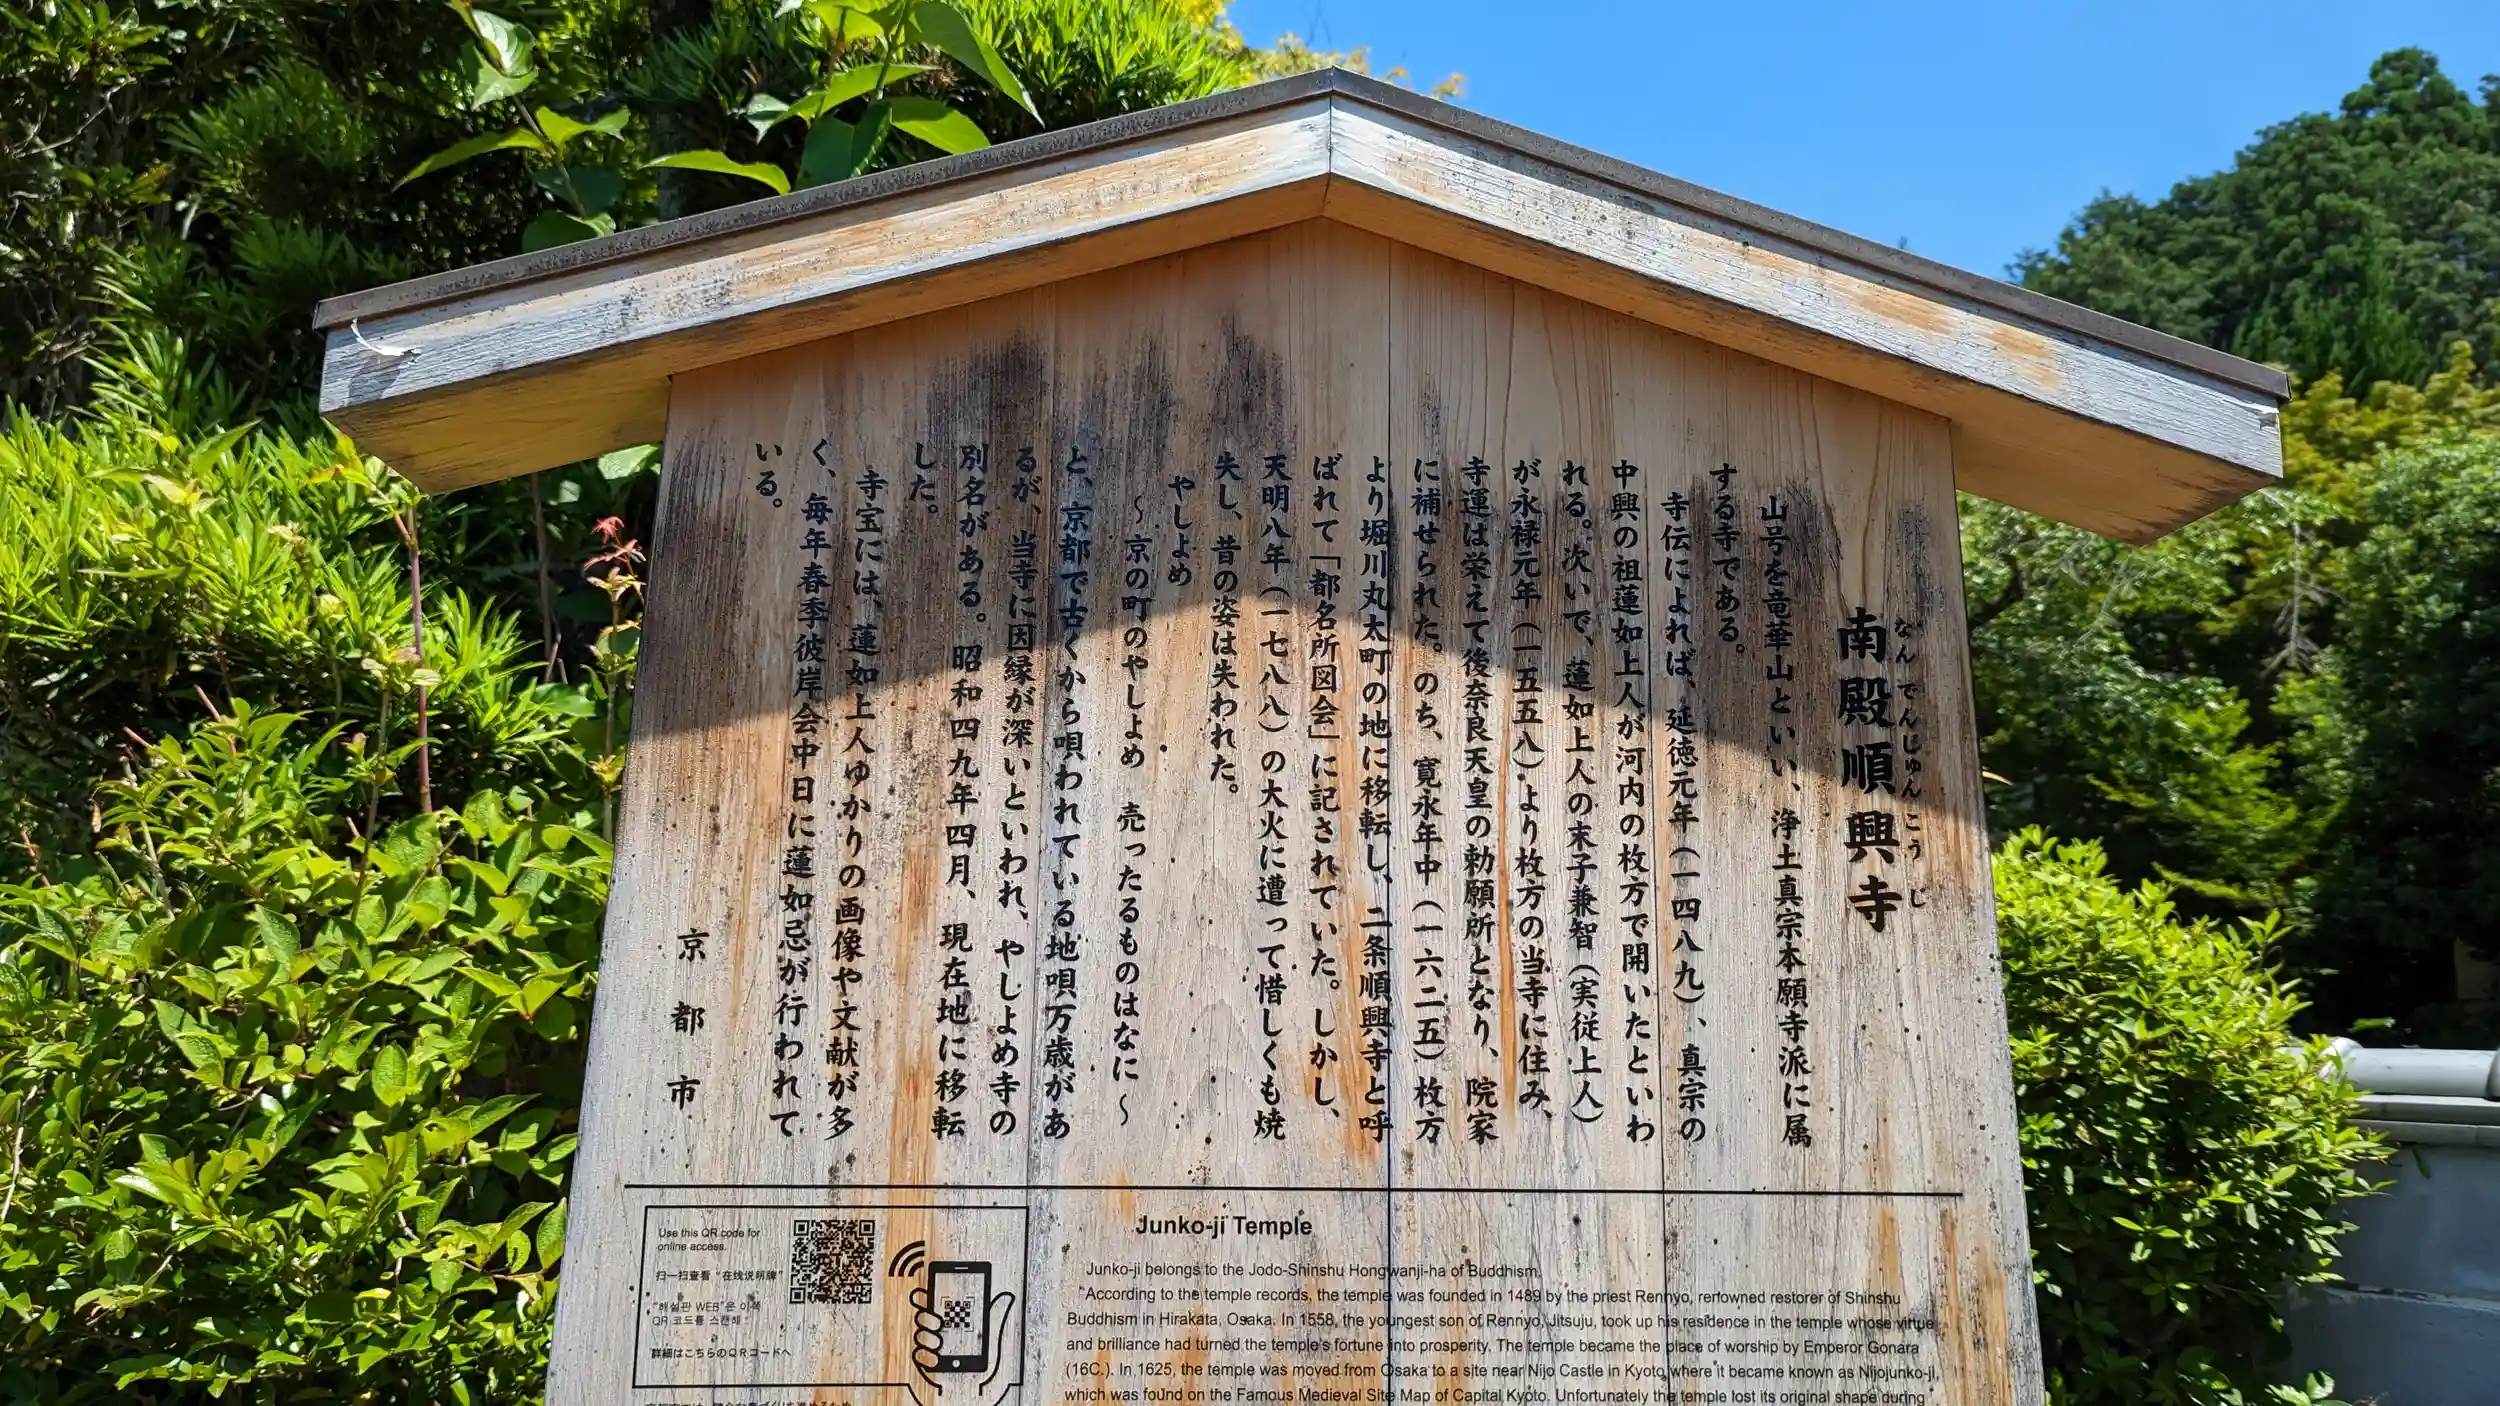 南殿順興寺
なんでんじゅんこうじ
山号を竜華山といい、浄土真宗本願寺派に属
する寺である。
寺伝によれば、延徳元年(一四八九)、真宗の
中興の祖蓮如上人が河内の枚方で開いたといわ
れる。次いで、蓮如上人の末子兼智(実従上人)
が永禄元年(一五五八)より枚方の当寺に住み、
寺運は栄えて後奈良天皇の勅願所となり、院家
に補せられた。のち、寛永年中(一六二五)枚方
より堀川丸太町の地に移転し、二条順興寺と呼
ばれて「都名所図会」に記されていた。しかし、
天明八年(一七八八)の大火に遭って惜しくも焼
失し、昔の姿は失われた。
やしよめ
~京の町のやしよめ 売ったるものはなに~
と、京都で古くから唄われている地唄万歳があ
るが、当寺に因縁が深いといわれ、やしよめ寺の
別名がある。昭和四九年四月、現在地に移転
した。
寺宝には、蓮如上人ゆかりの画像や文献が多
く、毎年春季彼岸会中日に蓮如忌が行われて
いる。
京都市
Use this QR code for
online access.
扫一扫查看“在线说明牌”
"해설판 WEB"은 이쪽
QR 코드를 스캔해
詳細はこちらのQRコードへ
Junko-ji Temple
Junko-ji belongs to the Jodo-Shinshu Hongwanji-ha of Buddhism.
"According to the temple records, the temple was founded in 1489 by the priest Rennyo, renowned restorer of Shinshu
Buddhism in Hirakata, Osaka. In 1558, the youngest son of Rennyo, Jitsuju, took up his residence in the temple whose virtue
and brilliance had turned the temple's fortune into prosperity. The temple became the place of worship by Emperor Gonara
(16C.). In 1625, the temple was moved from Osaka to a site near Nijo Castle in Kyoto where it became known as Nijojunko-ji,
which was found on the Famous Medieval Site Map of Capital Kyoto. Unfortunately the temple lost its original shape during